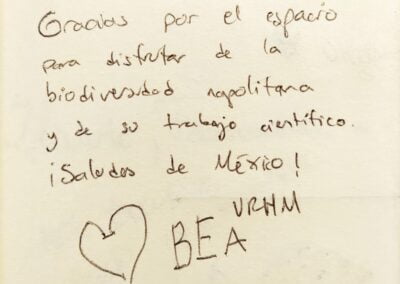 Gracias por el espacio
para disfrutar de la
biodiversidad napolitana
y de su trabajo científico.
¡Saludos de México!
BEA VRHM